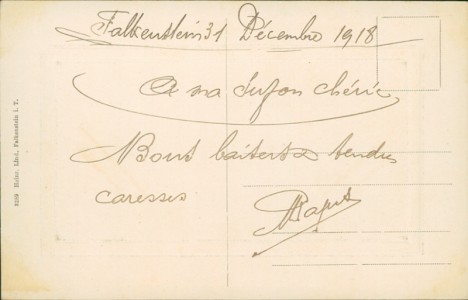 Falkenstein 31 Décembre 1918
A ma Suzon chérie
Bons baisers & tendres
caresses
9269 Heinr. Lind, Falkenstein i. T.